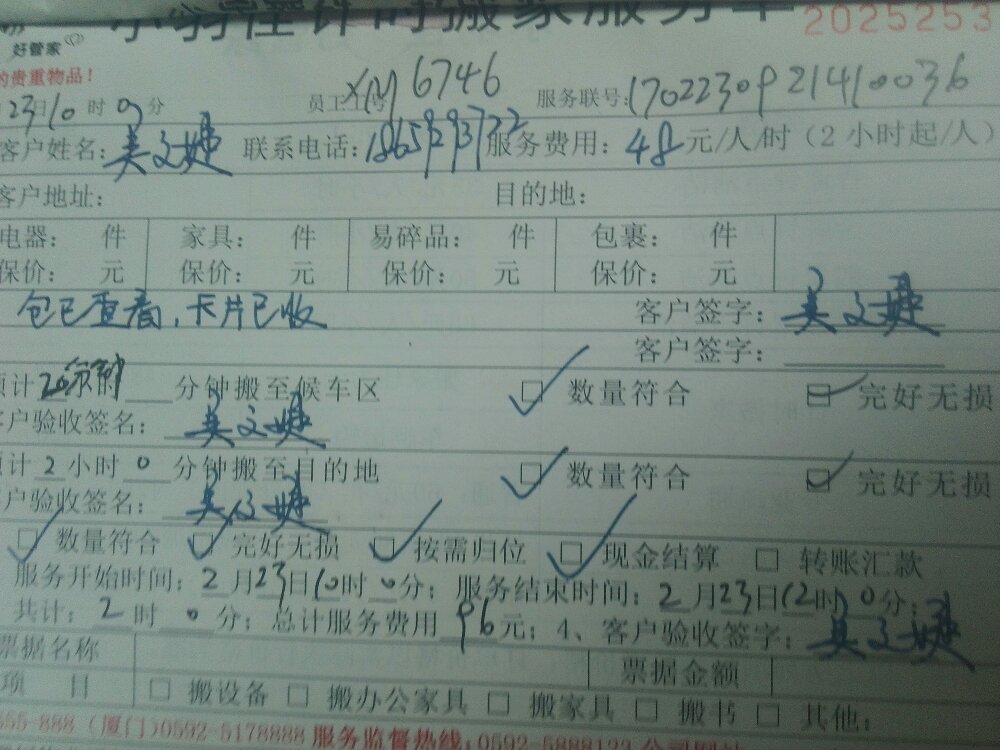 小家程计时搬家服务单 2025253
好管家
的贵重物品!
23日10时0分 员工工号XM6746 服务联号:170223092141 0036
客户姓名:吴文婕 联系电话:18659293722 服务费用:48元/人/时(2小时起/人)
客户地址: 目的地:
电器: 件 家具: 件 易碎品: 件 包裹: 件
保价: 元 保价: 元 保价: 元 保价: 元
包已查看,卡片已收 客户签字:吴文婕
客户签字:
预计20分钟 分钟搬至候车区 数量符合 完好无损
客户验收签名:吴文婕
预计2小时0分钟搬至目的地 数量符合 完好无损
客户验收签名:吴文婕
数量符合 完好无损 按需归位 现金结算 转账汇款
服务开始时间:2月23日10时0分;服务结束时间:2月23日12时0分;
共计:2时0分;总计服务费用96元;4、客户验收签字:吴文婕
票据名称 票据金额
项目 搬设备 搬办公家具 搬家具 搬书 其他:
555-888(厦门)0592-5178888 服务监督热线:0592-5888123 公司网站